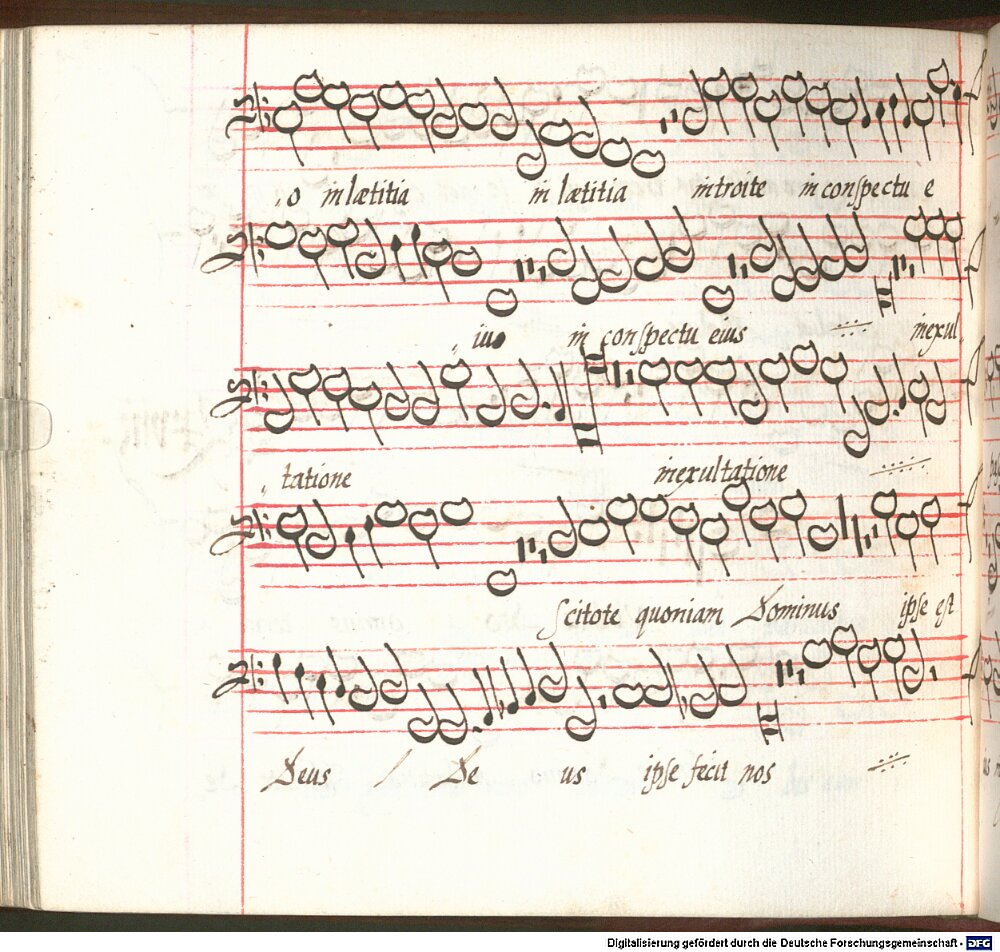 o in lætitia in lætitia introite in conspectu e
ius in conspectu eius inexul
tatione inexultatione
Scitote quoniam Dominus ipse est
Deus De us ipse fecit nos
Digitalisierung gefördert durch die Deutsche Forschungsgemeinschaft - DFG